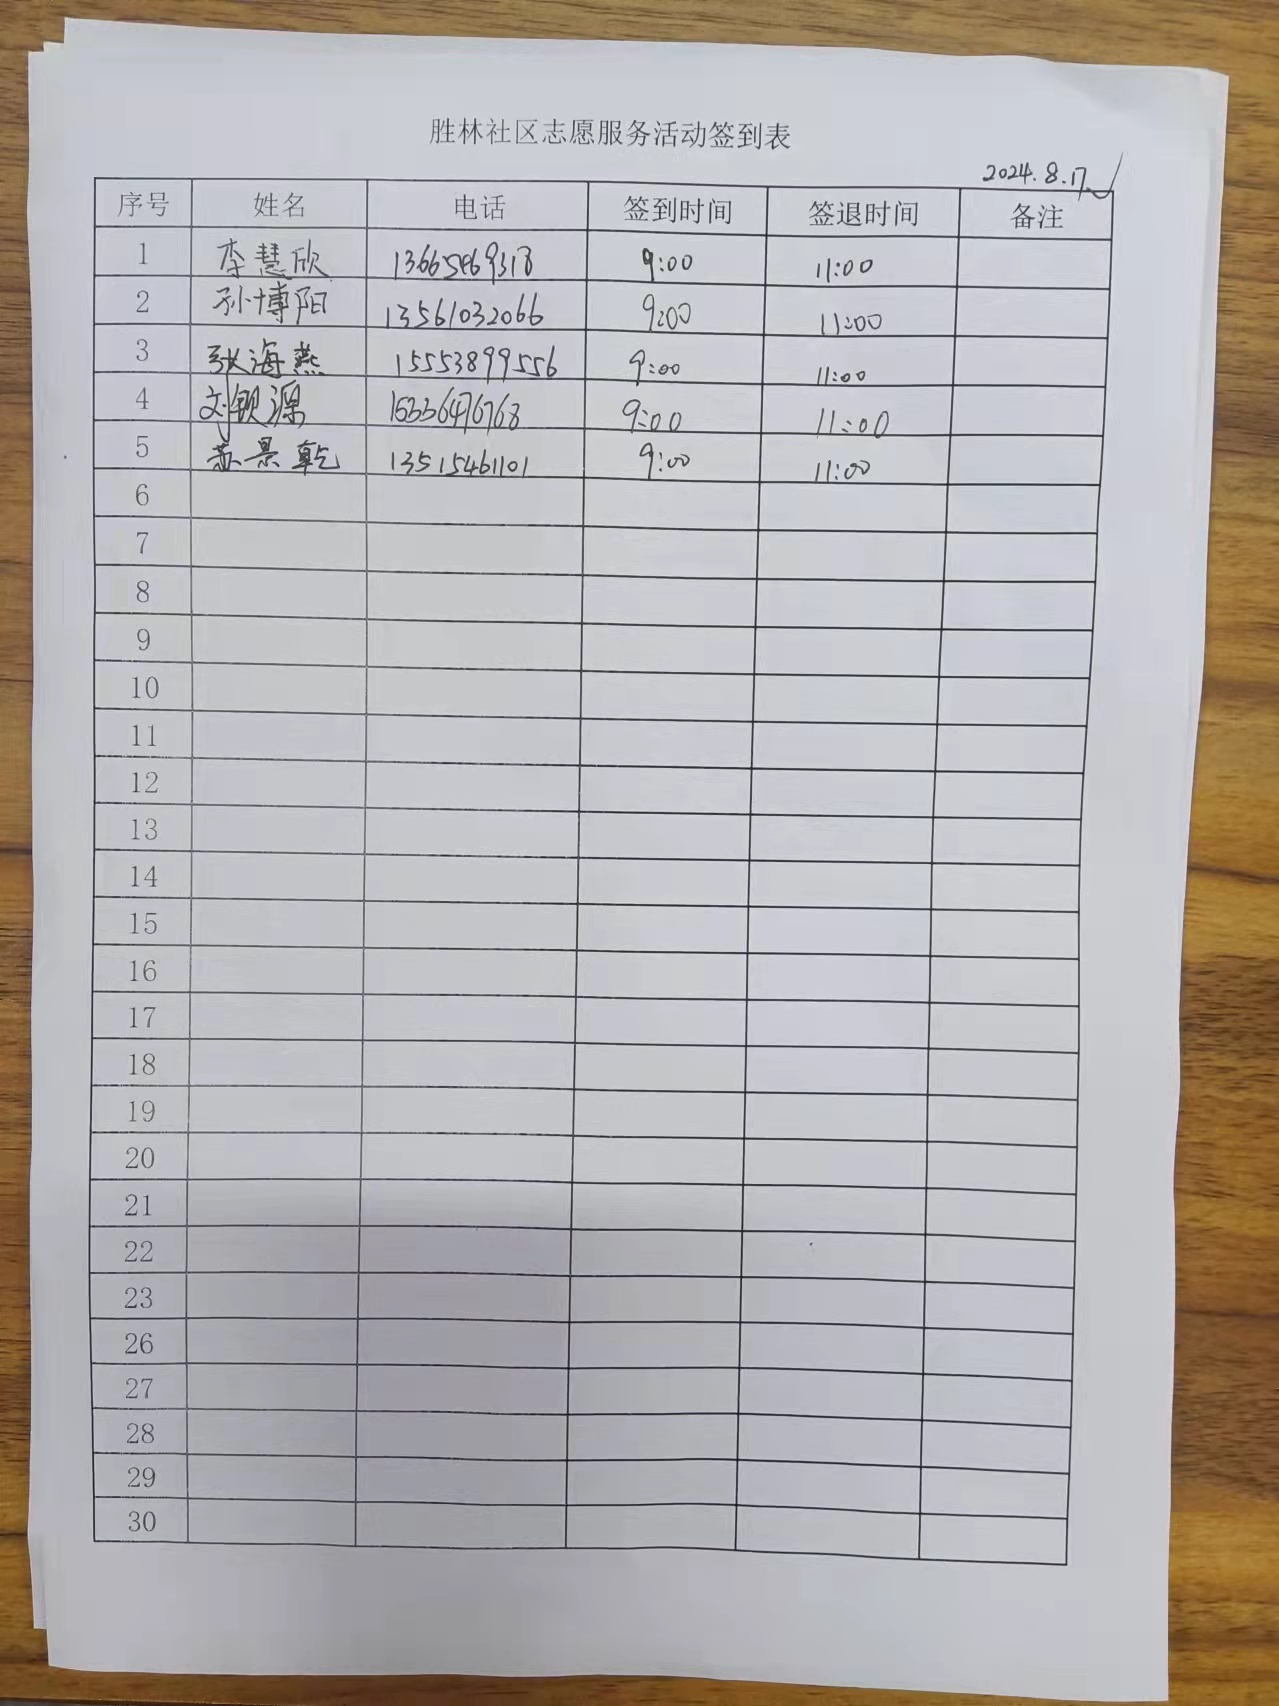 胜林社区志愿服务活动签到表
2024.8.17
序号 姓名 电话 签到时间 签退时间 备注
1 李慧欣 13665469318 9:00 11:00
2 孙博阳 13561032066 9:00 11:00
3 张海燕 15553899556 9:00 11:00
4 刘钡源 15336476768 9:00 11:00
5 苏景乾 13515461101 9:00 11:00
6
7
8
9
10
11
12
13
14
15
16
17
18
19
20
21
22
23
26
27
28
29
30